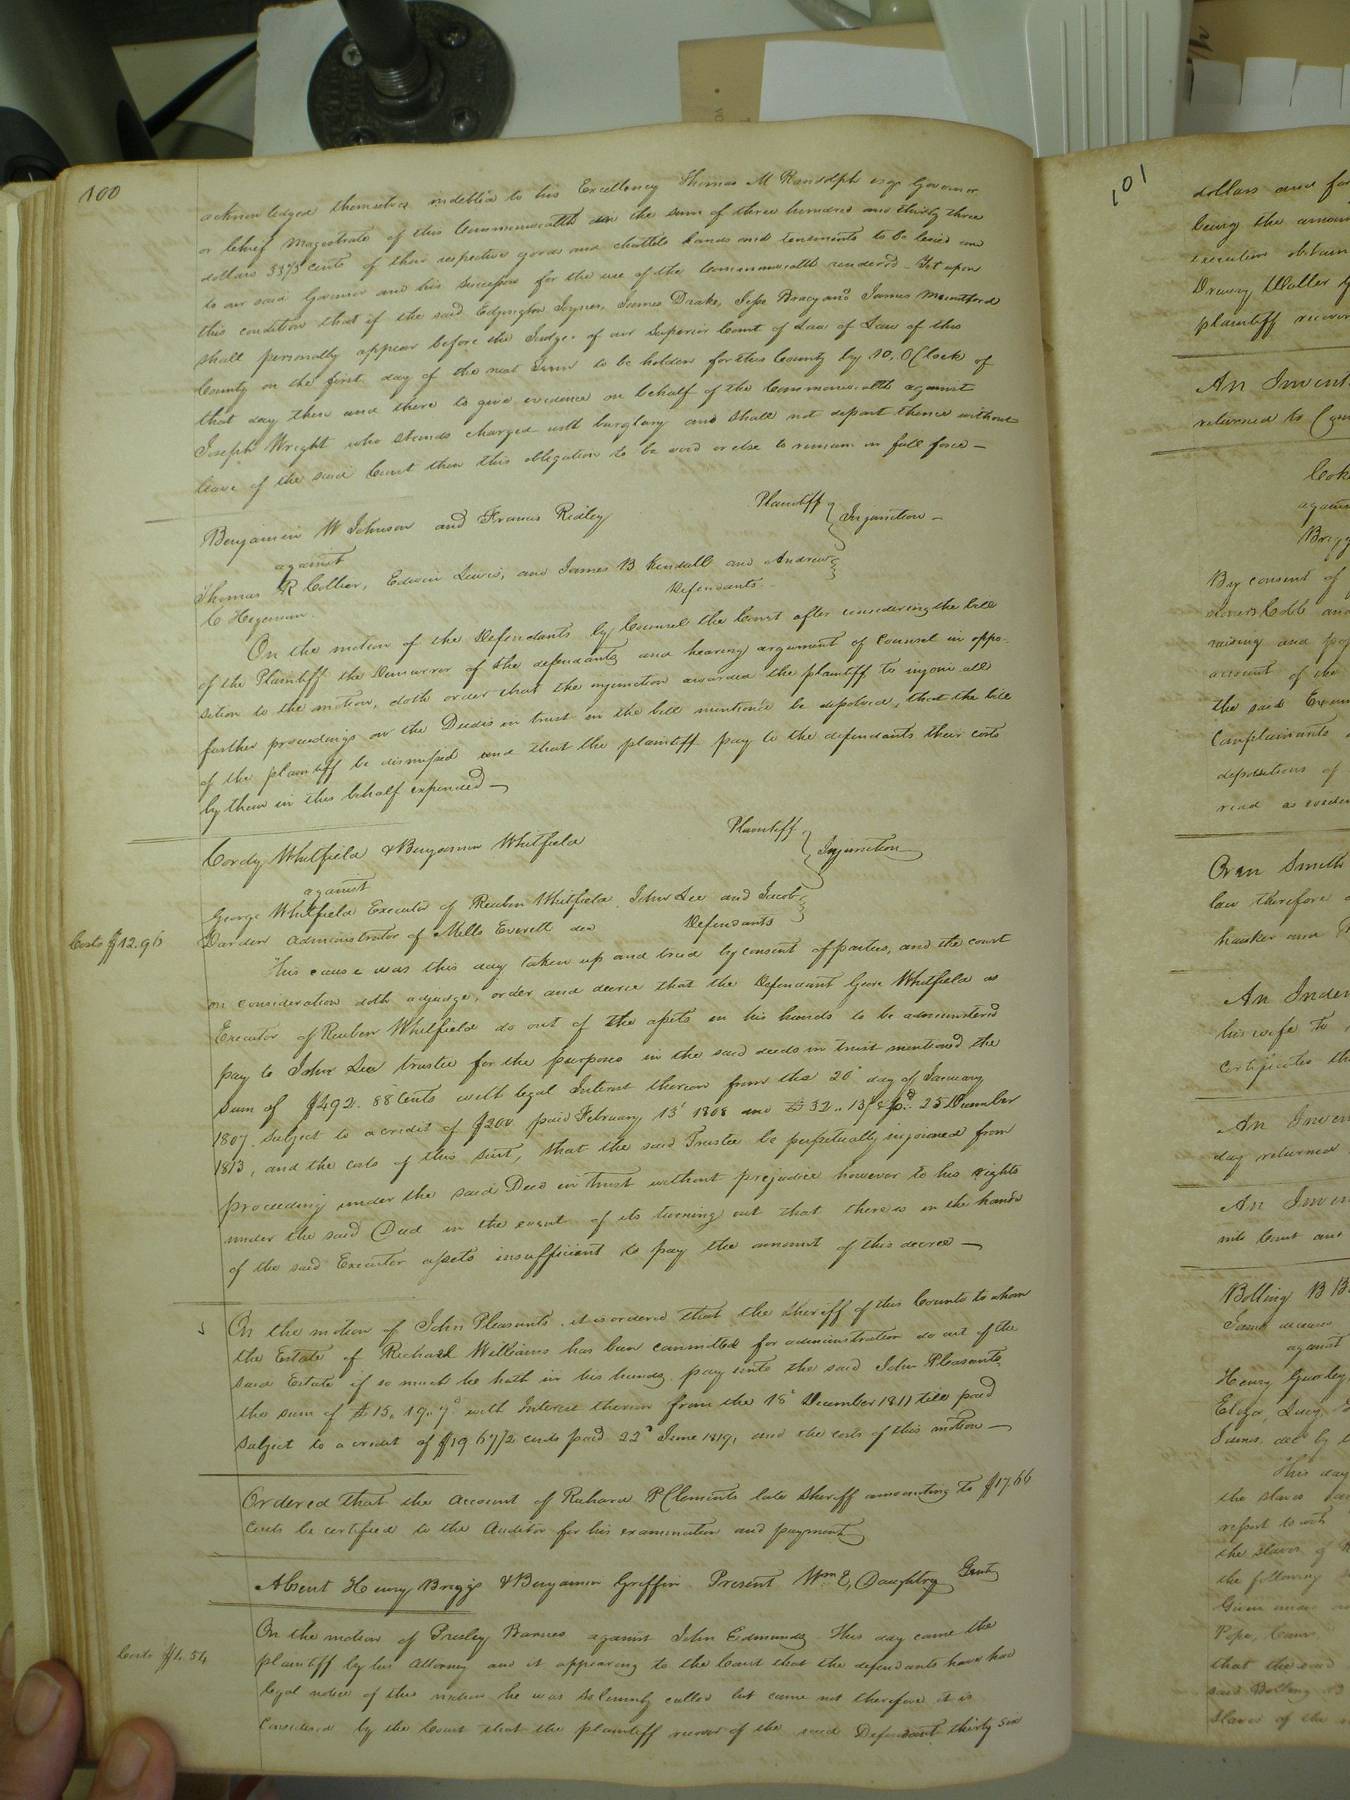 100
acknowledged themselves indebted to his Excellency Thomas M Randolph esqr Governor
or Chief Magistrate of this Commonwealth in the sum of three hundred and thirty three
dollars 33 1/3 cents of their respective goods and chattels lands and tenements to be levied and
to our said Governor and his successors for the use of the Commonwealth rendered - Yet upon
this condition that if the said Edyington Joyner, James Drake, Jesse Bracy and James Mountford
shall personally appear before the Judge of our Superior Court of Law of Law of this
County on the first day of the next Term to be holden for this County by 10. O Clock of
that day then and there to give evidence on behalf of the Commonwealth against
Joseph Wright who stands charged with burglary and shall not depart thence without
leave of the said Court then this obligation to be void or else to remain in full force -
Benjamin W Johnson and Francis Ridley Plaintiff
Injunction -
against
Thomas R Collier, Edwin Lewis, and James B Kendall and Andrew
C Hegeman Defendants
On the motion of the Defendants by Counsel the Court after considering the bill
of the Plaintiff the Demurror of the defendants and hearing argument of Counsel in oppo-
sition to the motion, doth order that the injunction awarded the plaintiff to injoin all
further proceedings on the Deeds in trust in the bill mentioned be dissolved, that the bill
of the plaintiff be dismissed and that the plaintiff pay to the defendants their costs
by them in this behalf expended -
Cordy Whitfield & Benjamin Whitfield Plaintiff
Injunction
against
George Whitfield Executor of Reuben Whitfield, John Lee and Jacob
Costs $12.96 Darden Administrator of Mills Everett dec Defendants
This cause was this day taken up and tried by consent of parties, and the court
on consideration doth adjudge, order and decree that the Defendant George Whitfield as
Executor of Reuben Whitfield do out of the assets in his hands to be administered
pay to John Lee trustee for the purposes in the said deeds in trust mentioned the
sum of $492.88 Cents with legal Interest thereon from the 20 day of January
1807, subject to a credit of $200 paid February 13 1808 and £32..13/ 25 December
1813, and the costs of this suit, that the said Trustee be perpetually injoined from
proceeding under the said Deed in trust without prejudice however to his rights
under the said Deed in the event of its turning out that there is in the hands
of the said Executor assets insufficient to pay the amount of this decree -
On the motion of John Pleasants, it is ordered that the sheriff of this County to whom
the Estate of Richard Williams has been committed for administration do out of the
said Estate if so much he hath in his hands pay unto the said John Pleasants
the sum of £15. 19. 7 with Interest thereon from the 18 December 1811 till paid
subject to a credit of $19 67 1/2 cents paid 22d June 1819, and the costs of this motion -
Ordered that the account of Richard P Clements late sheriff amounting to $17.66
Cents be certified to the Auditor for his examination and payment
Absent Henry Briggs & Benjamin Griffin Present Wm E, Daughtry Gentn
On the motion of Presley Barnes against John Edmunds This day came the
Costs $4.54 plaintiff by his Attorney and it appearing to the Court that the defendants have had
legal notice of this motion he was solemnly called but came not therefore it is
Considered by the Court that the plaintiff recover of the said Defendant thirty six
101
dollars and
being the amoun
execution obtain
Drewry Waller
plaintiff recover
An Invent
returned to
against
By consent of
raising and
account of the
the said
Complainants
depositions of
read as
Oren Smith
law therefore
hawker and
An Inden
his wife to
certificates th
An Inven
day returned
An Inven
into Court and
Bolling B
against
Henry Gurley
Eliza, Lucy
This day
the slaves
report to wit
the slaves of
the following
Pope,
that the said
said Bolling
slaves of the